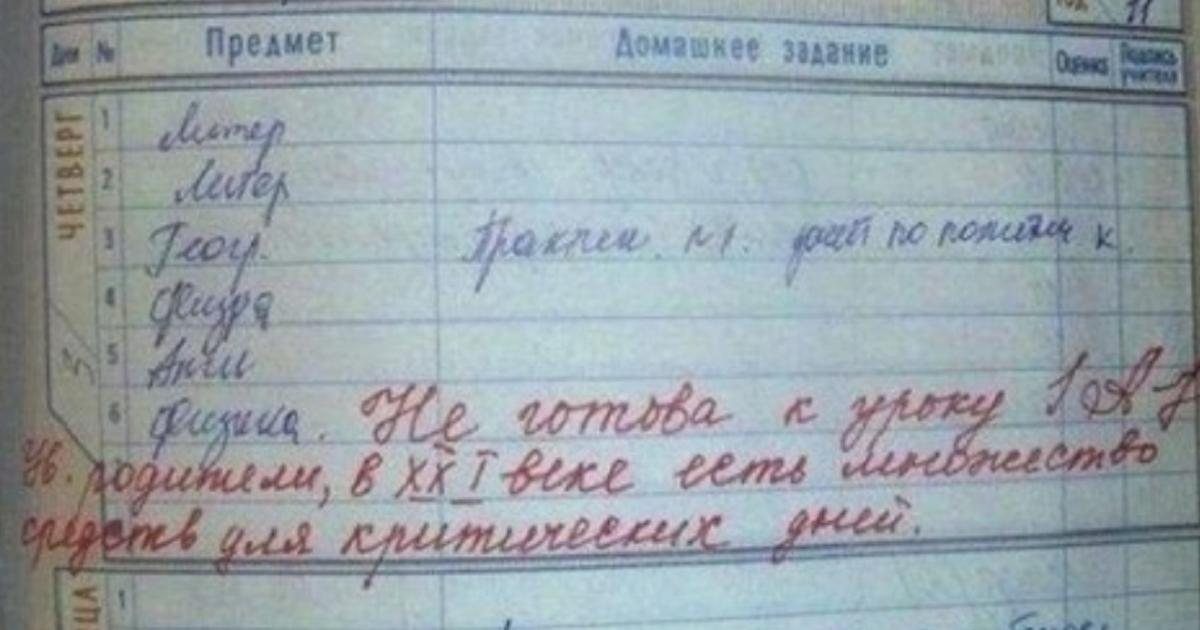 11
Дни № Предмет Домашнее задание Оценка Подпись учителя
ЧЕТВЕРГ
1 Литер
2 Литер
3 Геогр. Практич. №1.
4 Физра
5 Англ
6 Физика. Не готова к уроку 1
Ув. родители, в XXI веке есть множество
средств для критических дней.
ЦА 1